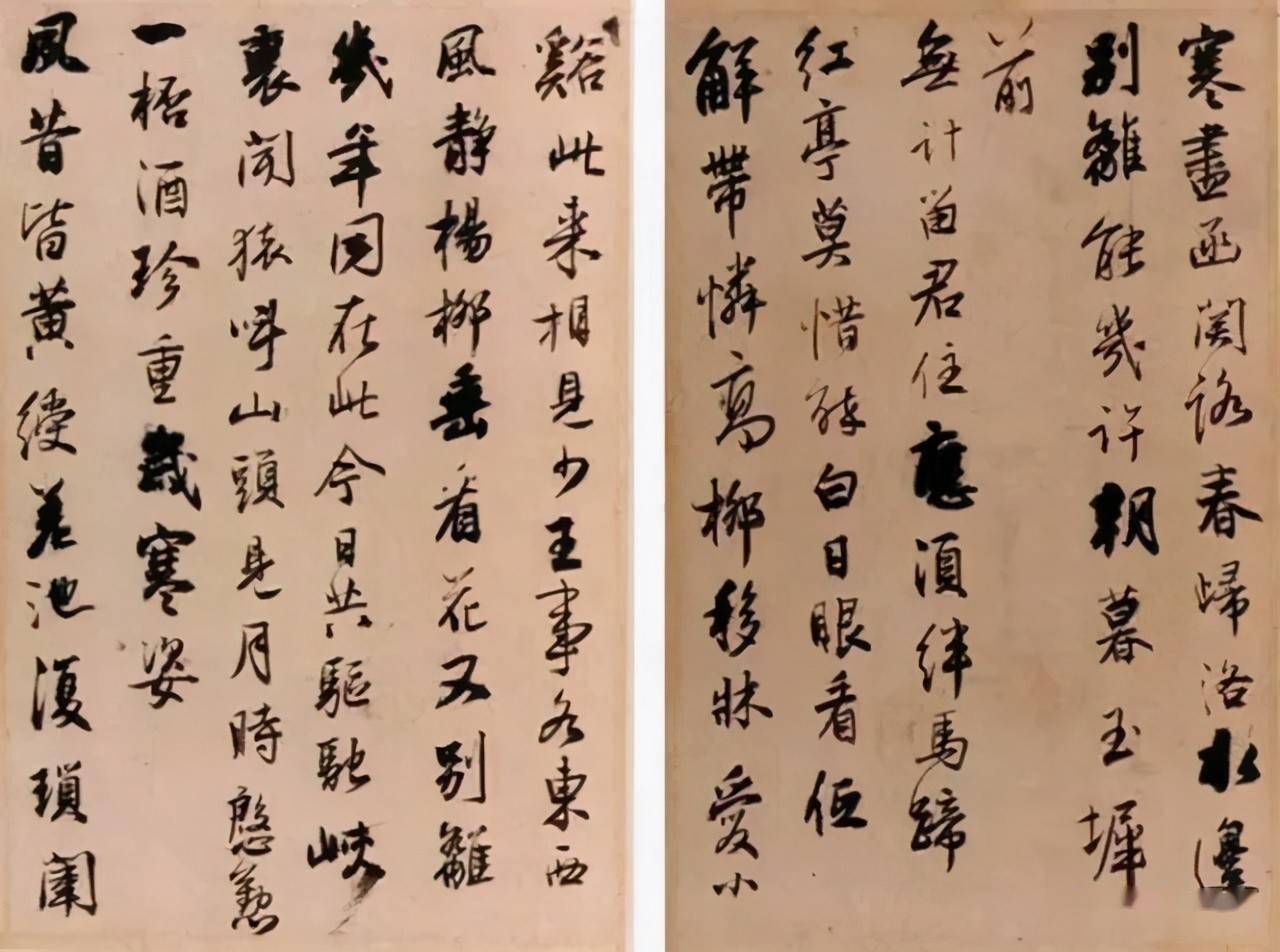 寒盡函関路春歸洛水邊
別離能幾許朝暮玉墀
前
無計留君住應須絆馬蹄
紅亭莫惜醉白日眼看低
解帶憐高柳移牀愛小
谿此来相見少王事各東西
風静楊柳垂看花又別離
幾年同在此今日共驅馳峽
裏聞猿叫山頭見月時慇懃
一桮酒珍重歲寒姿
風昔皆黄綬差池復瑣闈